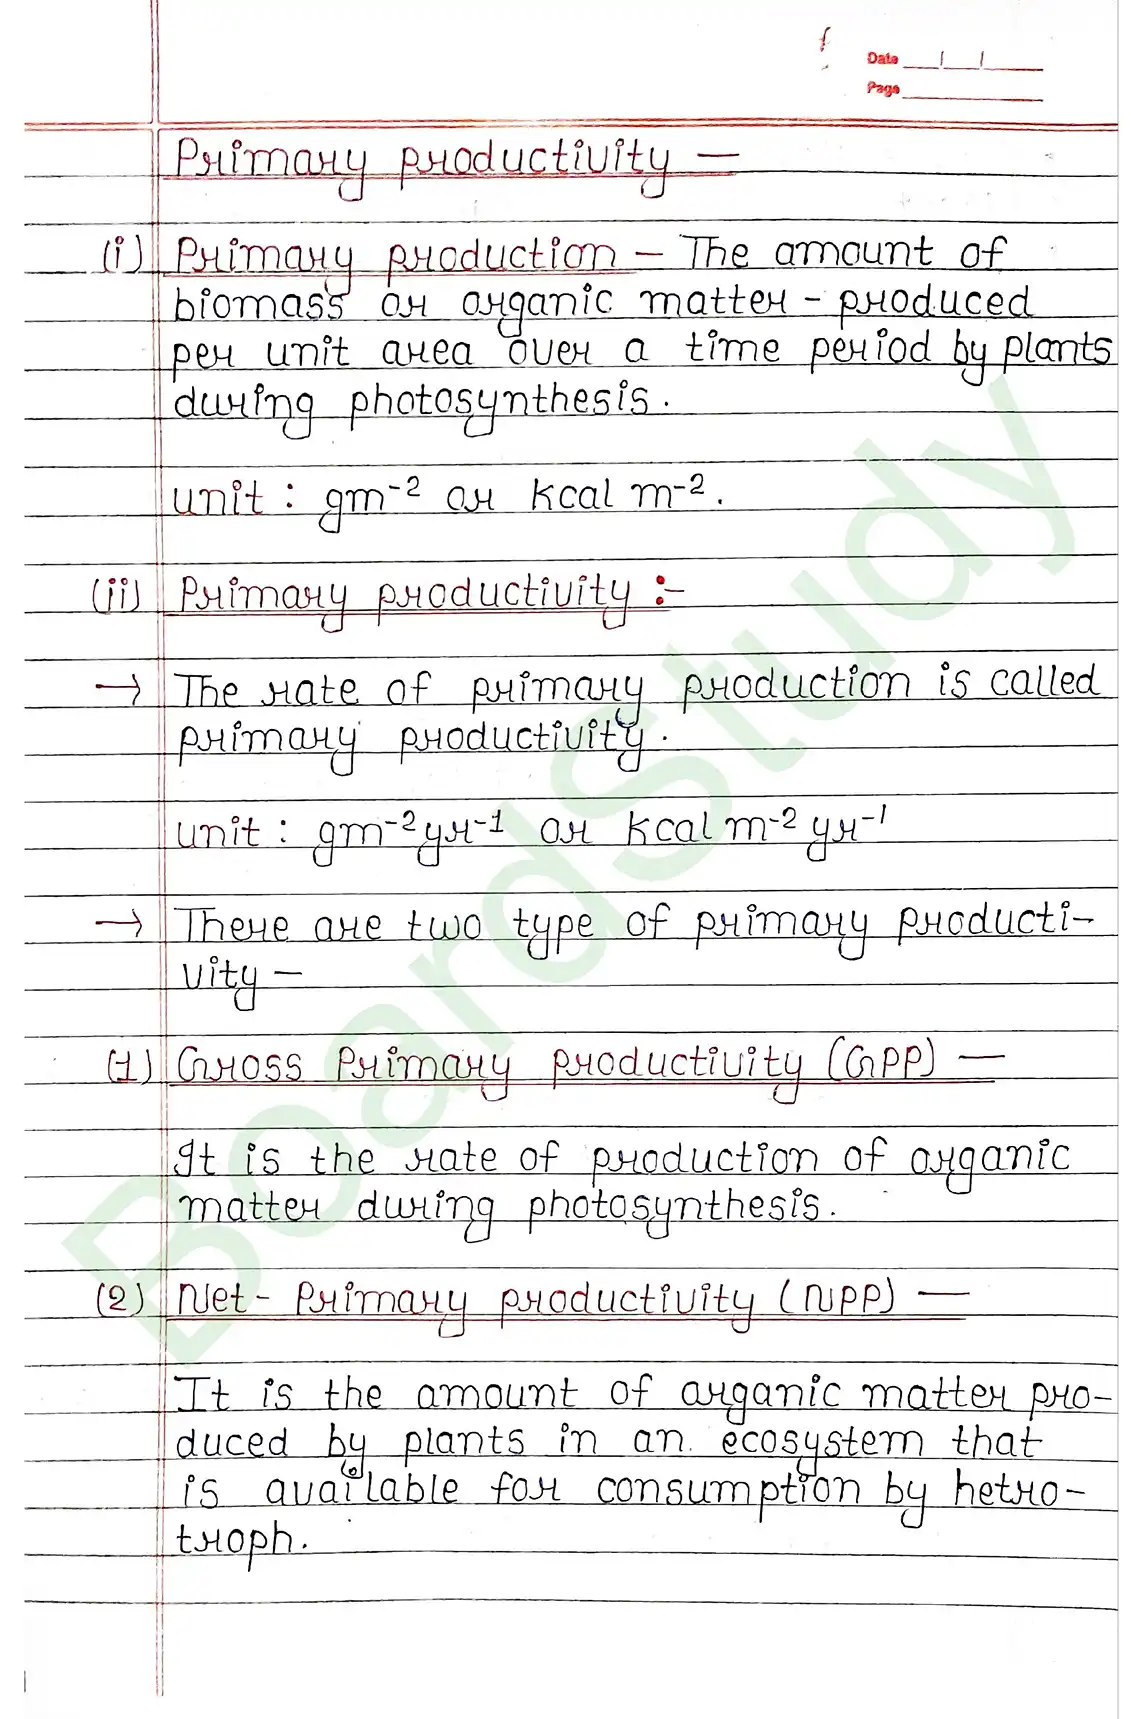 Date / /
Page
Primary productivity —
(i) Primary production — The amount of
biomass or organic matter - produced
per unit area over a time period by plants
during photosynthesis.
unit : gm⁻² or Kcal m⁻².
(ii) Primary productivity :-
→ The rate of primary production is called
primary productivity.
unit : gm⁻² yr⁻¹ or Kcal m⁻² yr⁻¹
→ There are two type of primary producti-
vity —
(1) Gross Primary productivity (GPP) —
It is the rate of production of organic
matter during photosynthesis.
(2) Net - Primary productivity (NPP) —
It is the amount of organic matter pro-
duced by plants in an ecosystem that
is available for consumption by hetro-
troph.
BoardStudy